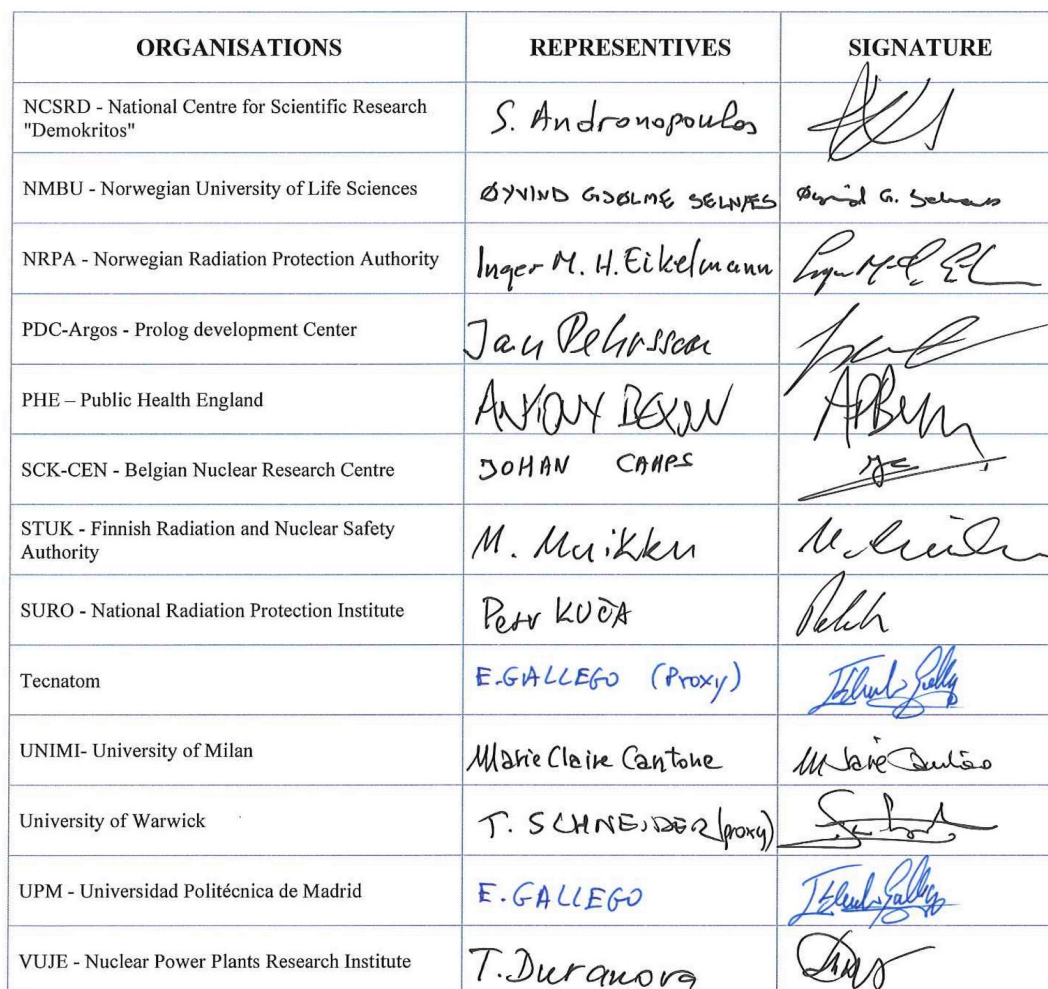 ORGANISATIONS REPRESENTIVES SIGNATURE
NCSRD - National Centre for Scientific Research
"Demokritos"
S. Andronopoulos
NMBU - Norwegian University of Life Sciences ØYVIND GJØLME SELNÆS Øyvind G. Selnæs
NRPA - Norwegian Radiation Protection Authority Inger M. H. Eikelmann
PDC-Argos - Prolog development Center Jan Pehrsson
PHE – Public Health England ANTONY BEXON
SCK-CEN - Belgian Nuclear Research Centre JOHAN CAMPS
STUK - Finnish Radiation and Nuclear Safety
Authority
M. Muikku
SURO - National Radiation Protection Institute Petr KUČA
Tecnatom E. GALLEGO (Proxy)
UNIMI- University of Milan Marie Claire Cantone
University of Warwick T. SCHNEIDER (proxy)
UPM - Universidad Politécnica de Madrid E. GALLEGO
VUJE - Nuclear Power Plants Research Institute T. Duranova